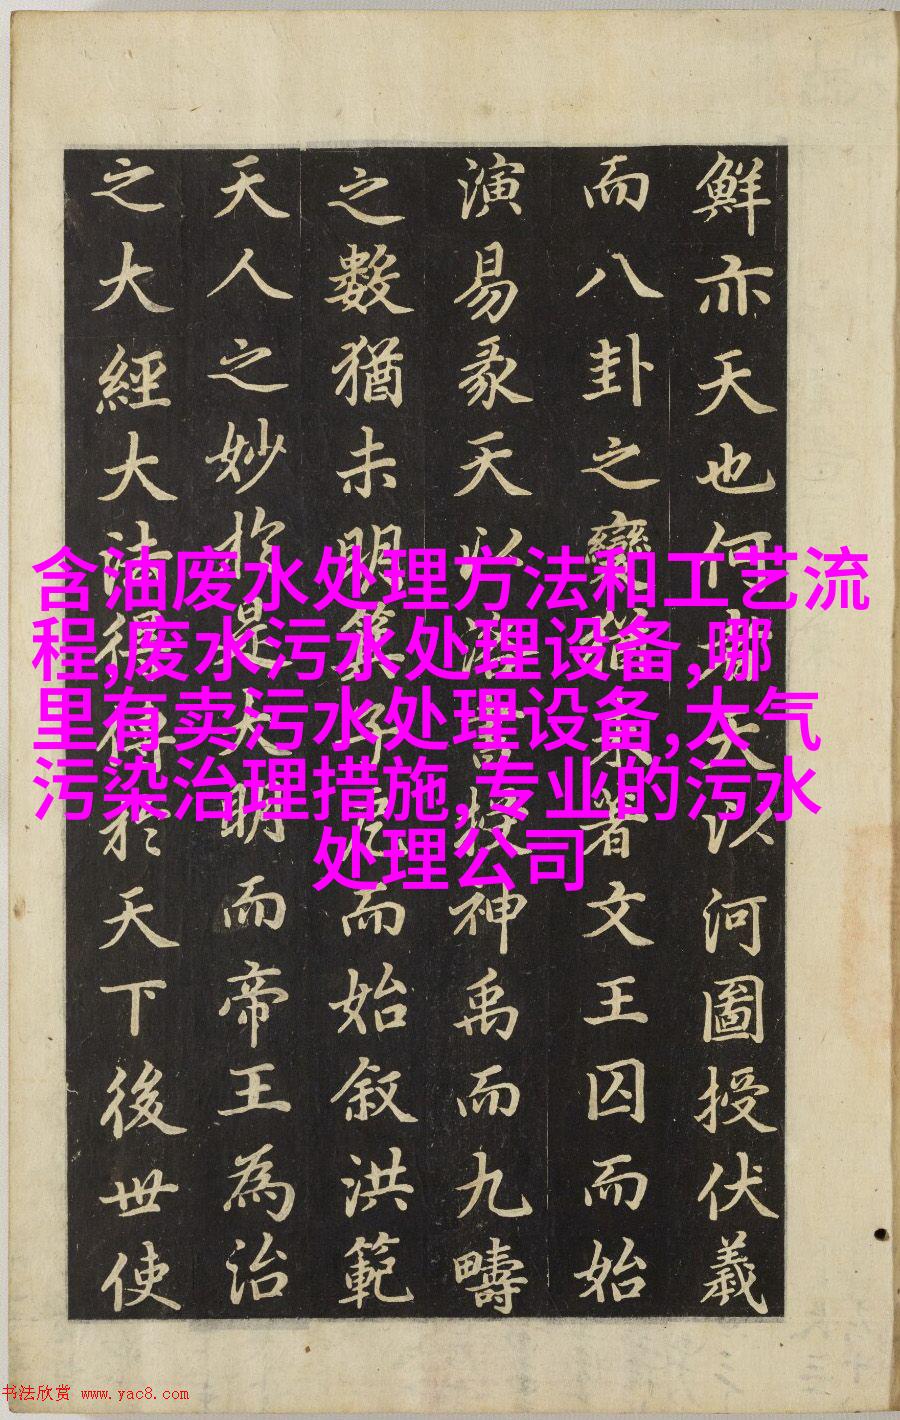 鮮亦天也何天以河圖授伏羲
而八卦之變猶未著文王囚而始
演易彖天以洛書授神禹而九疇
之數猶未明箕而始叙洪範
天人之妙於是大明而帝王為治
之大經大法得於天下後世使
含油废水处理方法和工艺流
程,废水污水处理设备,哪
里有卖污水处理设备,大气
污染治理措施,专业的污水
处理公司
书法欣赏 www.yac8.com